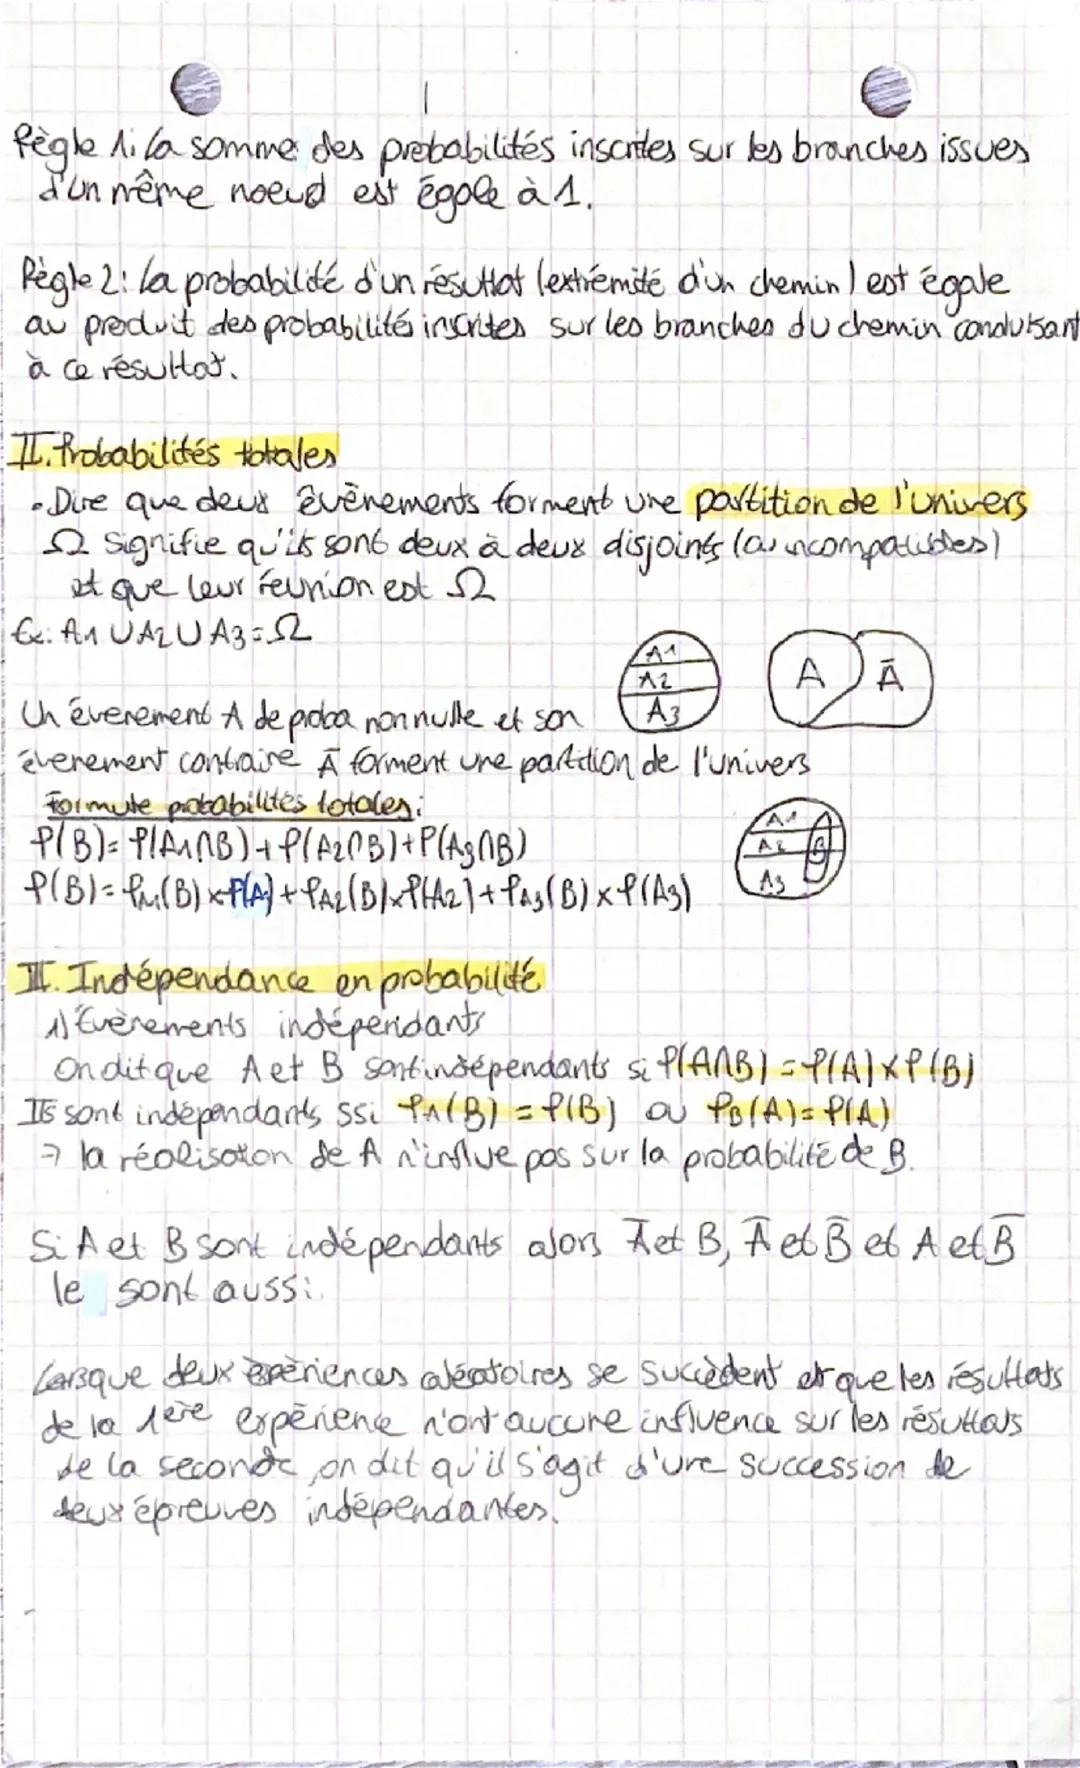 Règle 1: La somme des probabilités inscrites sur les branches issues
d'un même noeud est égale à 1.
Règle 2: La probabilité d'un résultat (extrémité d'un chemin) est égale
au produit des probabilités inscrites sur les branches du chemin conduisant
à ce résultat.
II. Probabilités totales
• Dire que deux évènements forment une partition de l'univers
Ω signifie qu'ils sont deux à deux disjoints (ou incompatibles)
et que leur réunion est Ω
Ex: A1 ∪ A2 ∪ A3 = Ω
A1
A2
A3
A Ā
Un évenement A de proba non nulle et son
évenement contraire Ā forment une partition de l'univers
Formule probabilités totales:
P(B) = P(A1∩B) + P(A2∩B) + P(A3∩B)
P(B) = PA1(B) × P(A1) + PA2(B) × P(A2) + PA3(B) × P(A3)
A1
A2 B
A3
III. Indépendance en probabilité
1) Evènements indépendants
On dit que A et B sont indépendants si P(A∩B) = P(A) × P(B)
Ils sont indépendants ssi PA(B) = P(B) ou PB(A) = P(A)
→ la réalisation de A n'influe pas sur la probabilité de B.
Si A et B sont indépendants alors Ā et B, Ā et B̄ et A et B̄
le sont aussi.
Lorsque deux expèriences aléatoires se succèdent et que les résultats
de la 1ère expèrience n'ont aucune influence sur les résultats
de la seconde, on dit qu'il s'agit d'une succession de
deux épreuves indépendantes.